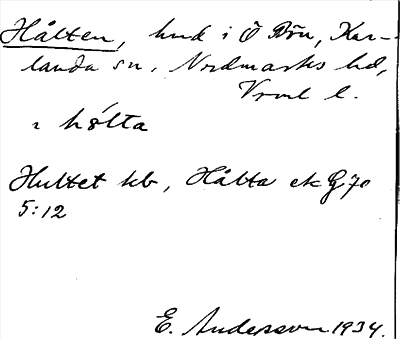 Hålten, hmd i Ö Bön, Kar-
landa sn, Nordmarks hd,
Vrml l.
1 hǻlta
Hultet kb, Hålta ek G 70
5:12
E. Andersson 1934.